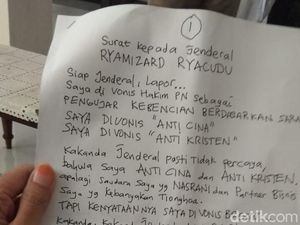 1
Surat kepada Jenderal
RYAMIZARD RYACUDU
Siap Jenderal, Lapor...
Saya di Vonis Hakim PN sebagai
PENGUJAR KEBENCIAN BERDASARKAN SARA
SAYA DIVONIS "ANTI CINA"
SAYA DIVONIS "ANTI KRISTEN"
Kakanda Jenderal pasti tidak percaya,
bahwa saya ANTI CINA dan ANTI KRISTEN,
apalagi saudara saya yg NASRANI dan Partner Bisnis
Saya yg kebanyakan Tionghoa.
TAPI KENYATAANNYA SAYA DI VONIS
Kakanda
detikcom